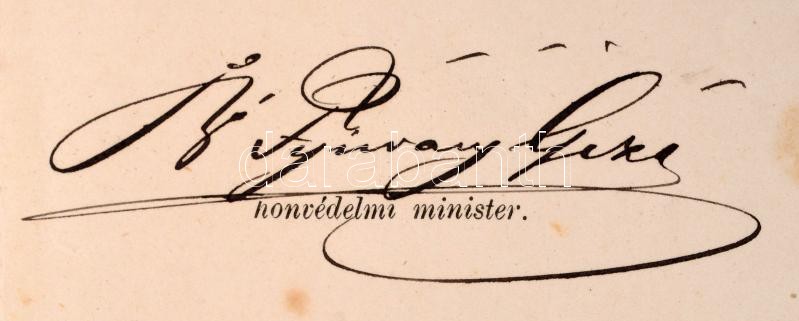 B. Fejérváry Géza
honvédelmi minister.
darabanth